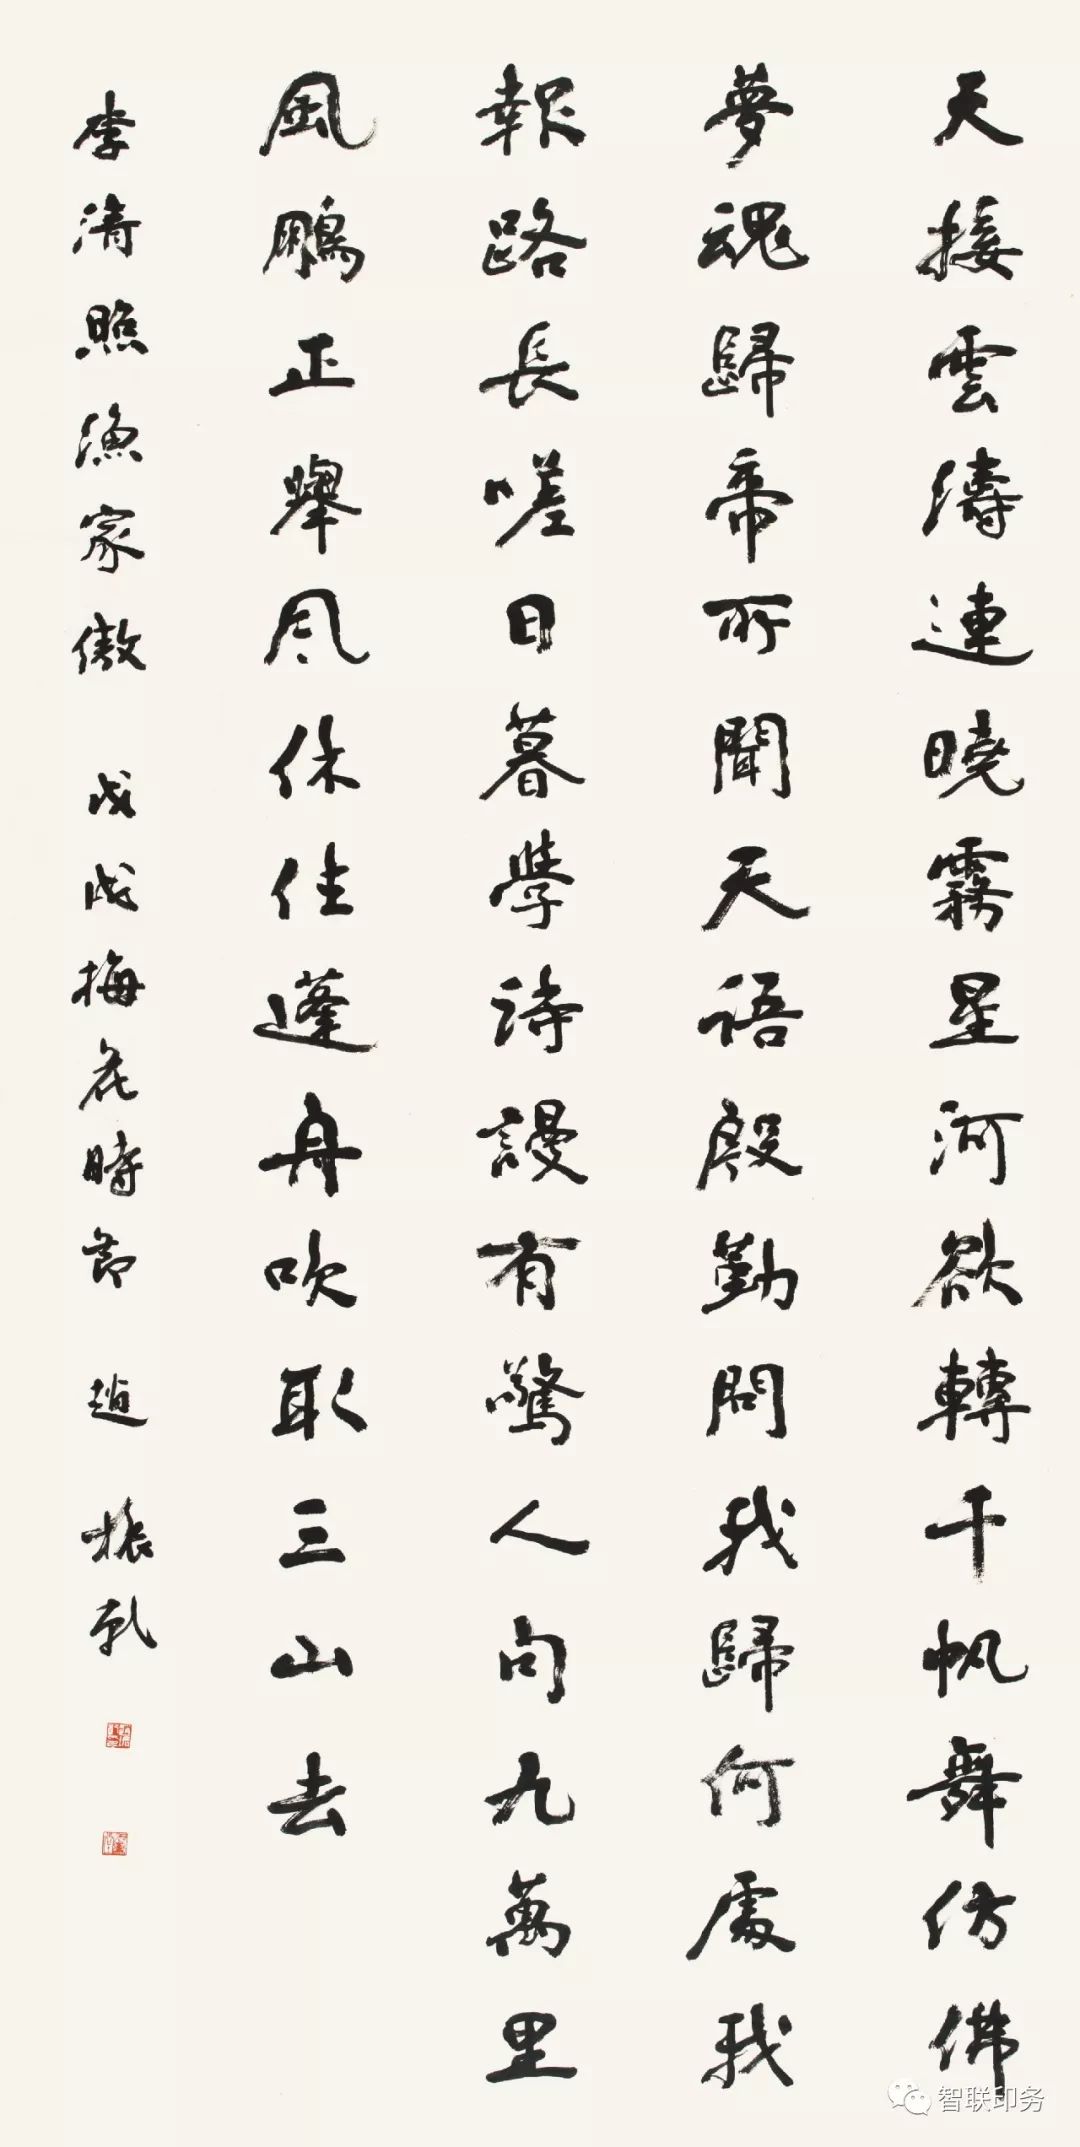 天接雲濤連曉霧星河欲轉千帆舞仿佛
夢魂歸帝所聞天語殷勤問我歸何處我
報路長嗟日暮學詩謾有驚人句九萬里
風鵬正舉風休住蓬舟吹取三山去
李清照漁家傲 戊戌梅花時節 趙振乾
智联印务